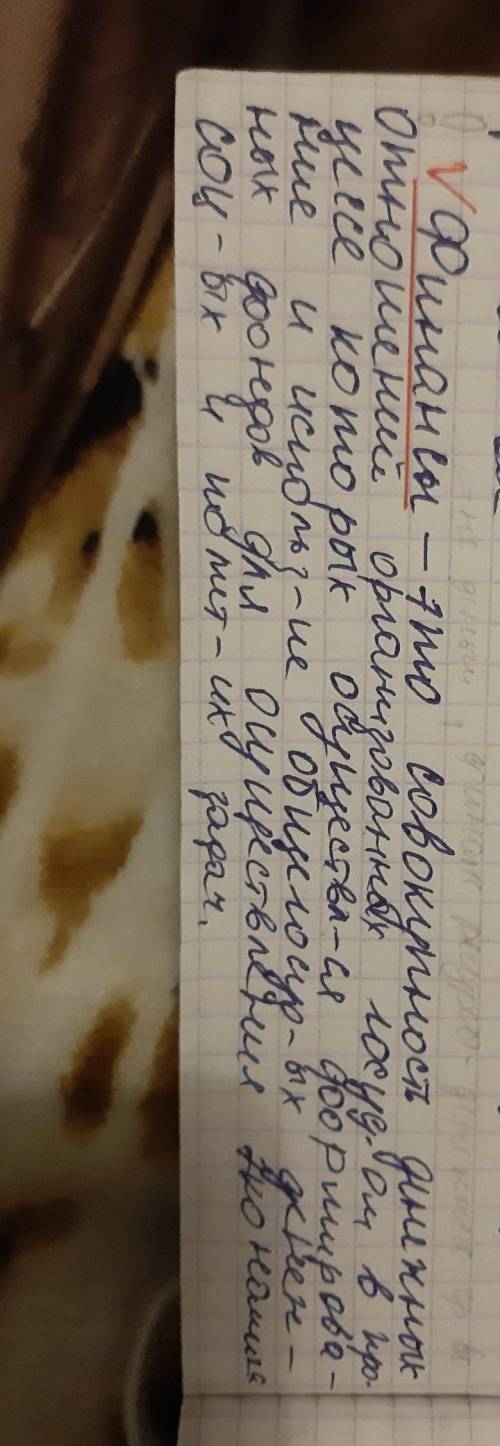 √ Финансы – это совокупность днежных
отношений организованных госуд-ом в про-
цессе которых осуществл-ся формирова-
ние и использ-ие общегосуд-ых денеж-
ных фондов для осуществления экономич
соц-ых и полит-их задач.